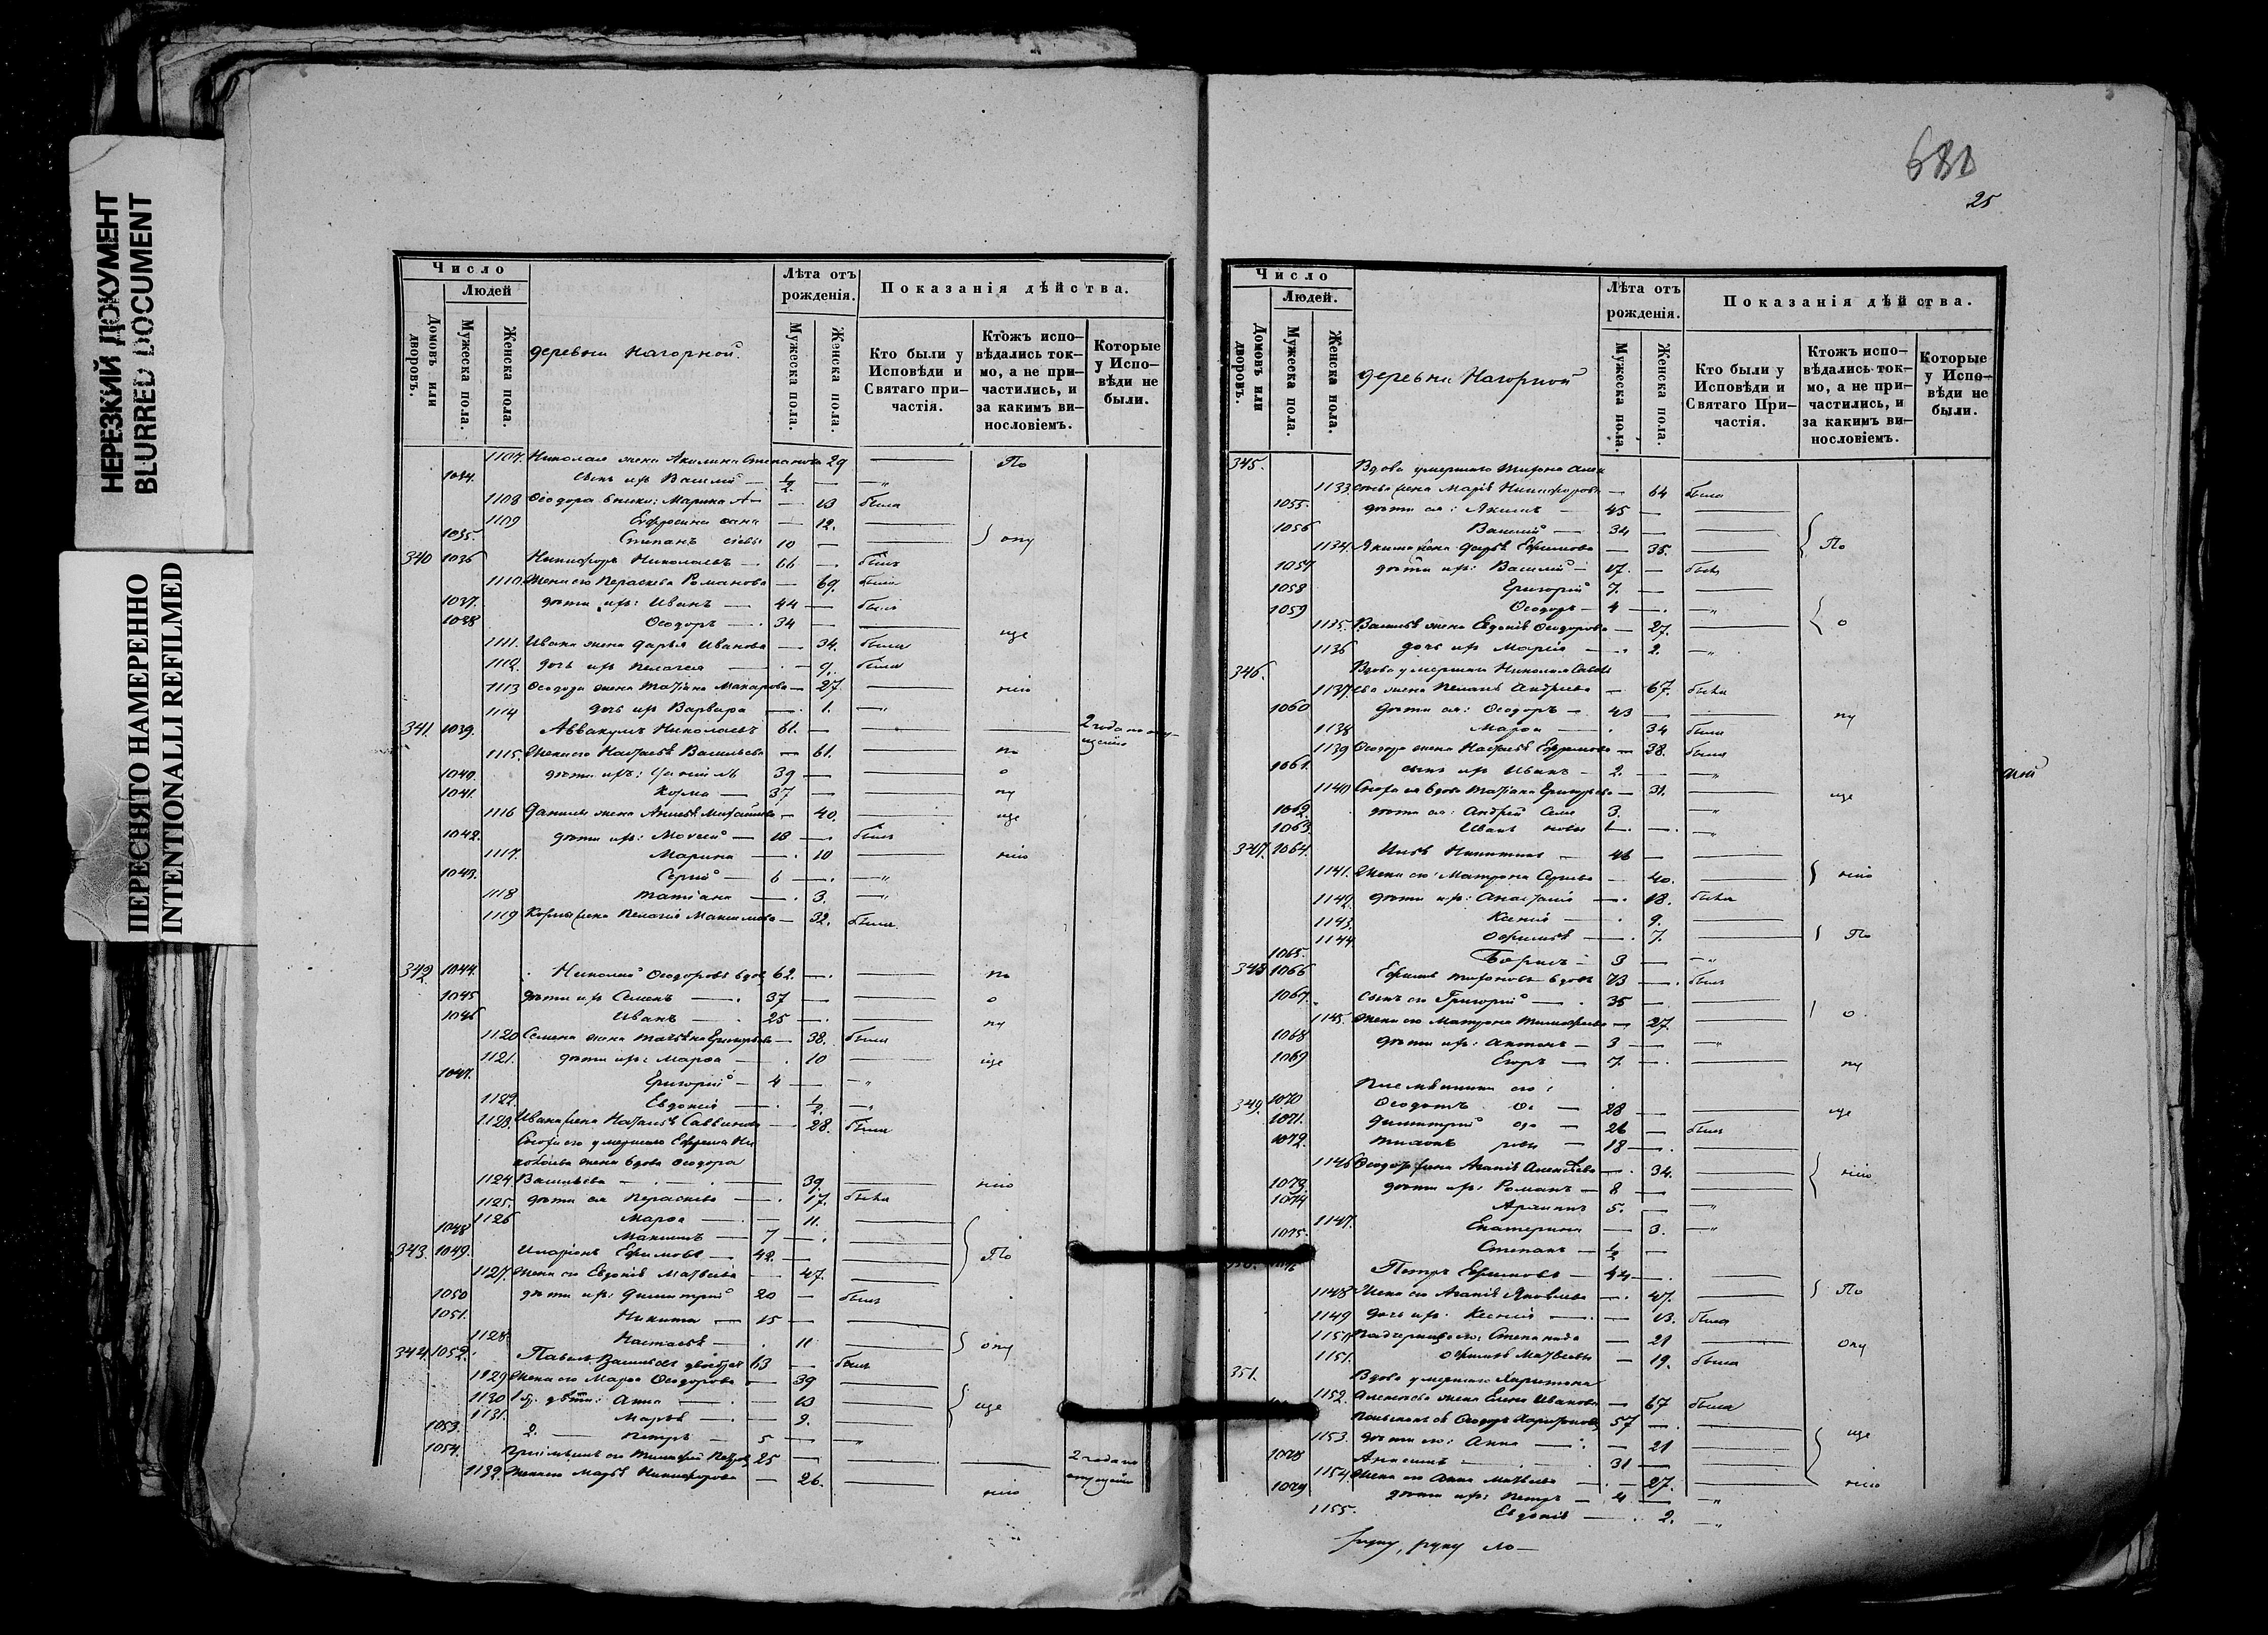 НЕРЕЗКИЙ ДОКУМЕНТ
BLURRED DOCUMENT
ПЕРЕСНЯТО НАМЕРЕННО
INTENTIONALLI REFILMED
Число
Людей
Домовъ или дворовъ.
Мужеска пола.
Женска пола.
деревни Нагорной.
Лѣта отъ рожденія.
Мужеска пола.
Женска пола.
Показанія дѣйства.
Кто были у Исповѣди и Святаго при-частія.
Ктожъ испо-вѣдались ток-мо, а не при-частились, и за какимъ ви-нословіемъ.
Которые у Испо-вѣди не были.
1107. Николая жена Акилина Степанова 29 — По
1034. сынъ ихъ Василій — ½ —
1108 Ѳеодора — 13 была
1109 Евфросина — 12. —
1035. Степанъ 10 — опу
340 1036 Никифоръ Николаевъ — 66 — былъ
1110. Жена его Параскева Романова — 69. была
1037. дѣти ихъ: Иванъ — 44 — былъ
1038 Ѳеодоръ — 34 — — ще
1111. Ивана жена Дарья Иванова — 34. была
1112. дочь ихъ Пелагея — 9. была
1113 Ѳеодора жена Татіана Макарова — 27. — нію
1114 дочь ихъ Варвара — 1. —
341. 1039. Аввакумъ Николаевъ 61. — — — 2 года по опу-щенію
1115. Жена его Настасья Васильева — 61. — по
1040. дѣти ихъ: Даніилъ 39 — — о
1041. Козма — 37 — — пу
1116 Данилы жена — 40. — ще
1042. дѣти ихъ: Моѵсей — 18 — былъ
1117. Марина — 10 — нію
1043. Сергій — 6 —
1118 Татіана — 3. —
1119 Козмы жена Пелагія Максимова — 32. была.
342. 1044. Николай Ѳеодоровъ вдов 62. — — по
1045 дѣти ихъ Семенъ — 37 — — о
1046 Иванъ — 25 — — пу
1120 Семена жена Татьяна Григорьева — 38. была
1121. дѣти ихъ: Марѳа — 10 — ще
1047. Григорій — 4 —
1122. Евдокія — ½. —
1123. Ивана жена Наталья Саввинова — 28. была
умершаго Ефрема Ни
колаева жена вдова Ѳеодора
1124 Васильева — 39. — нію
1125. дѣти ея Параскева — 17. была
1126 Марѳа — 11. —
1048 Максимъ — 7 — —
343. 1049. Иларіонъ Ефимовъ — 42. — — По
1127. Жена его Евдокія Матвѣева — 47. —
1050 дѣти ихъ: Димитрій 20 — былъ
1051. Никита — 15 — —
1128. Настасья — 11 — опу
344. 1052. Павелъ Васильевъ 63 — былъ
1129 Жена его Марѳа Ѳеодорова — 39 —
1130 1 бр. дѣти: Анна — 13 — ще
1131. Марья — 9. —
1053. 2 — Петръ — 5 —
1054. его Тимофей 25 — — — 2 года по опущенію
1132. Жена его Марья Никифорова — 26. — нію
680
25
Число
Людей.
Домовъ или дворовъ.
Мужеска пола.
Женска пола.
деревни Нагорной
Лѣта отъ рожденія.
Мужеска пола.
Женска пола.
Показанія дѣйства.
Кто были у Исповѣди и Святаго При-частія.
Ктожъ испо-вѣдались ток-мо, а не при-частились, и за какимъ ви-нословіемъ.
Которые у Испо-вѣди не были.
345. Вдова умершаго
1133. жена Марія Никифорова — 64 была
1055. дѣти ея: Якимъ — 45 — —
1056 Василій — 34 — —
1134. Якима жена Дарья Ефимова — 35. — По
1057 дѣти ихъ: Василій — 17. — былъ
1058 Григорій 7. — —
1059 Ѳеодоръ — 4 —
1135. Василія жена Евдокія Ѳеодорова — 27. — о
1136 дочь ихъ Марія — 2. —
346. Вдова умершаго Николая
1137. жена Пелагія Андреева — 67. была
1060 дѣти ея: Ѳеодоръ — 43 — — пу
1138 Марѳа — 34 была
1139 Ѳеодора жена Настасья Ефремова — 38. была
1061. сынъ ихъ Иванъ — 2. —
1140 вдова Татіана Григорьева — 31. — ще
1062. дѣти ея: Андрей 3.
1063 Иванъ 1 —
347. 1064. Илья Никитинъ — 46 — —
1141. Жена его Матрона — 40. — нію
1142. дѣти ихъ: Анастасія — 18. была
1143. Ксенія — 9. —
1144. Ефимія — 7. — По
1065. Борисъ — 3 —
348 1066 Ефимъ вдовъ 73 — былъ
1067. сынъ его Григорій — 35 — —
1145. Жена его Матрона Тимофеева — 27. — о
1068 дѣти ихъ: Антонъ — 3 —
1069 Егоръ — 7. — пу
Племянники его:
349. 1070 Ѳеодотъ — 28 — — ще
1071. Димитрій — 26 — былъ
1072. Тихонъ — 18 — .
1146 жена Агаѳія Алексѣева — 34. — нію
1073. дѣти ихъ: Романъ — 8 — —
1074 5. —
1147. Екатерина — 3. —
1075. Степанъ — ½ —
Петръ Ефимовъ — 44 — —
1148 Жена его Агаѳія Яковлева — 47. — По
1149 дочь ихъ Ксенія — 13. была
1150 Падчерицы его: Степанида — 21 — опу
1151. Ефимія Матвѣевы — 19. была
351. Вдова умершаго Харитона
1152. жена Елена Иванова — 67 была
Ѳеодоръ Харитоновъ 57 — .
1153. дѣти его: Анна — 21 — ще
1078 31 — —
1154. Жена его Анна Матвѣева — 27. — нію
1079 дѣти ихъ: Петръ — 4 —
1155. Евдокія — 2. —